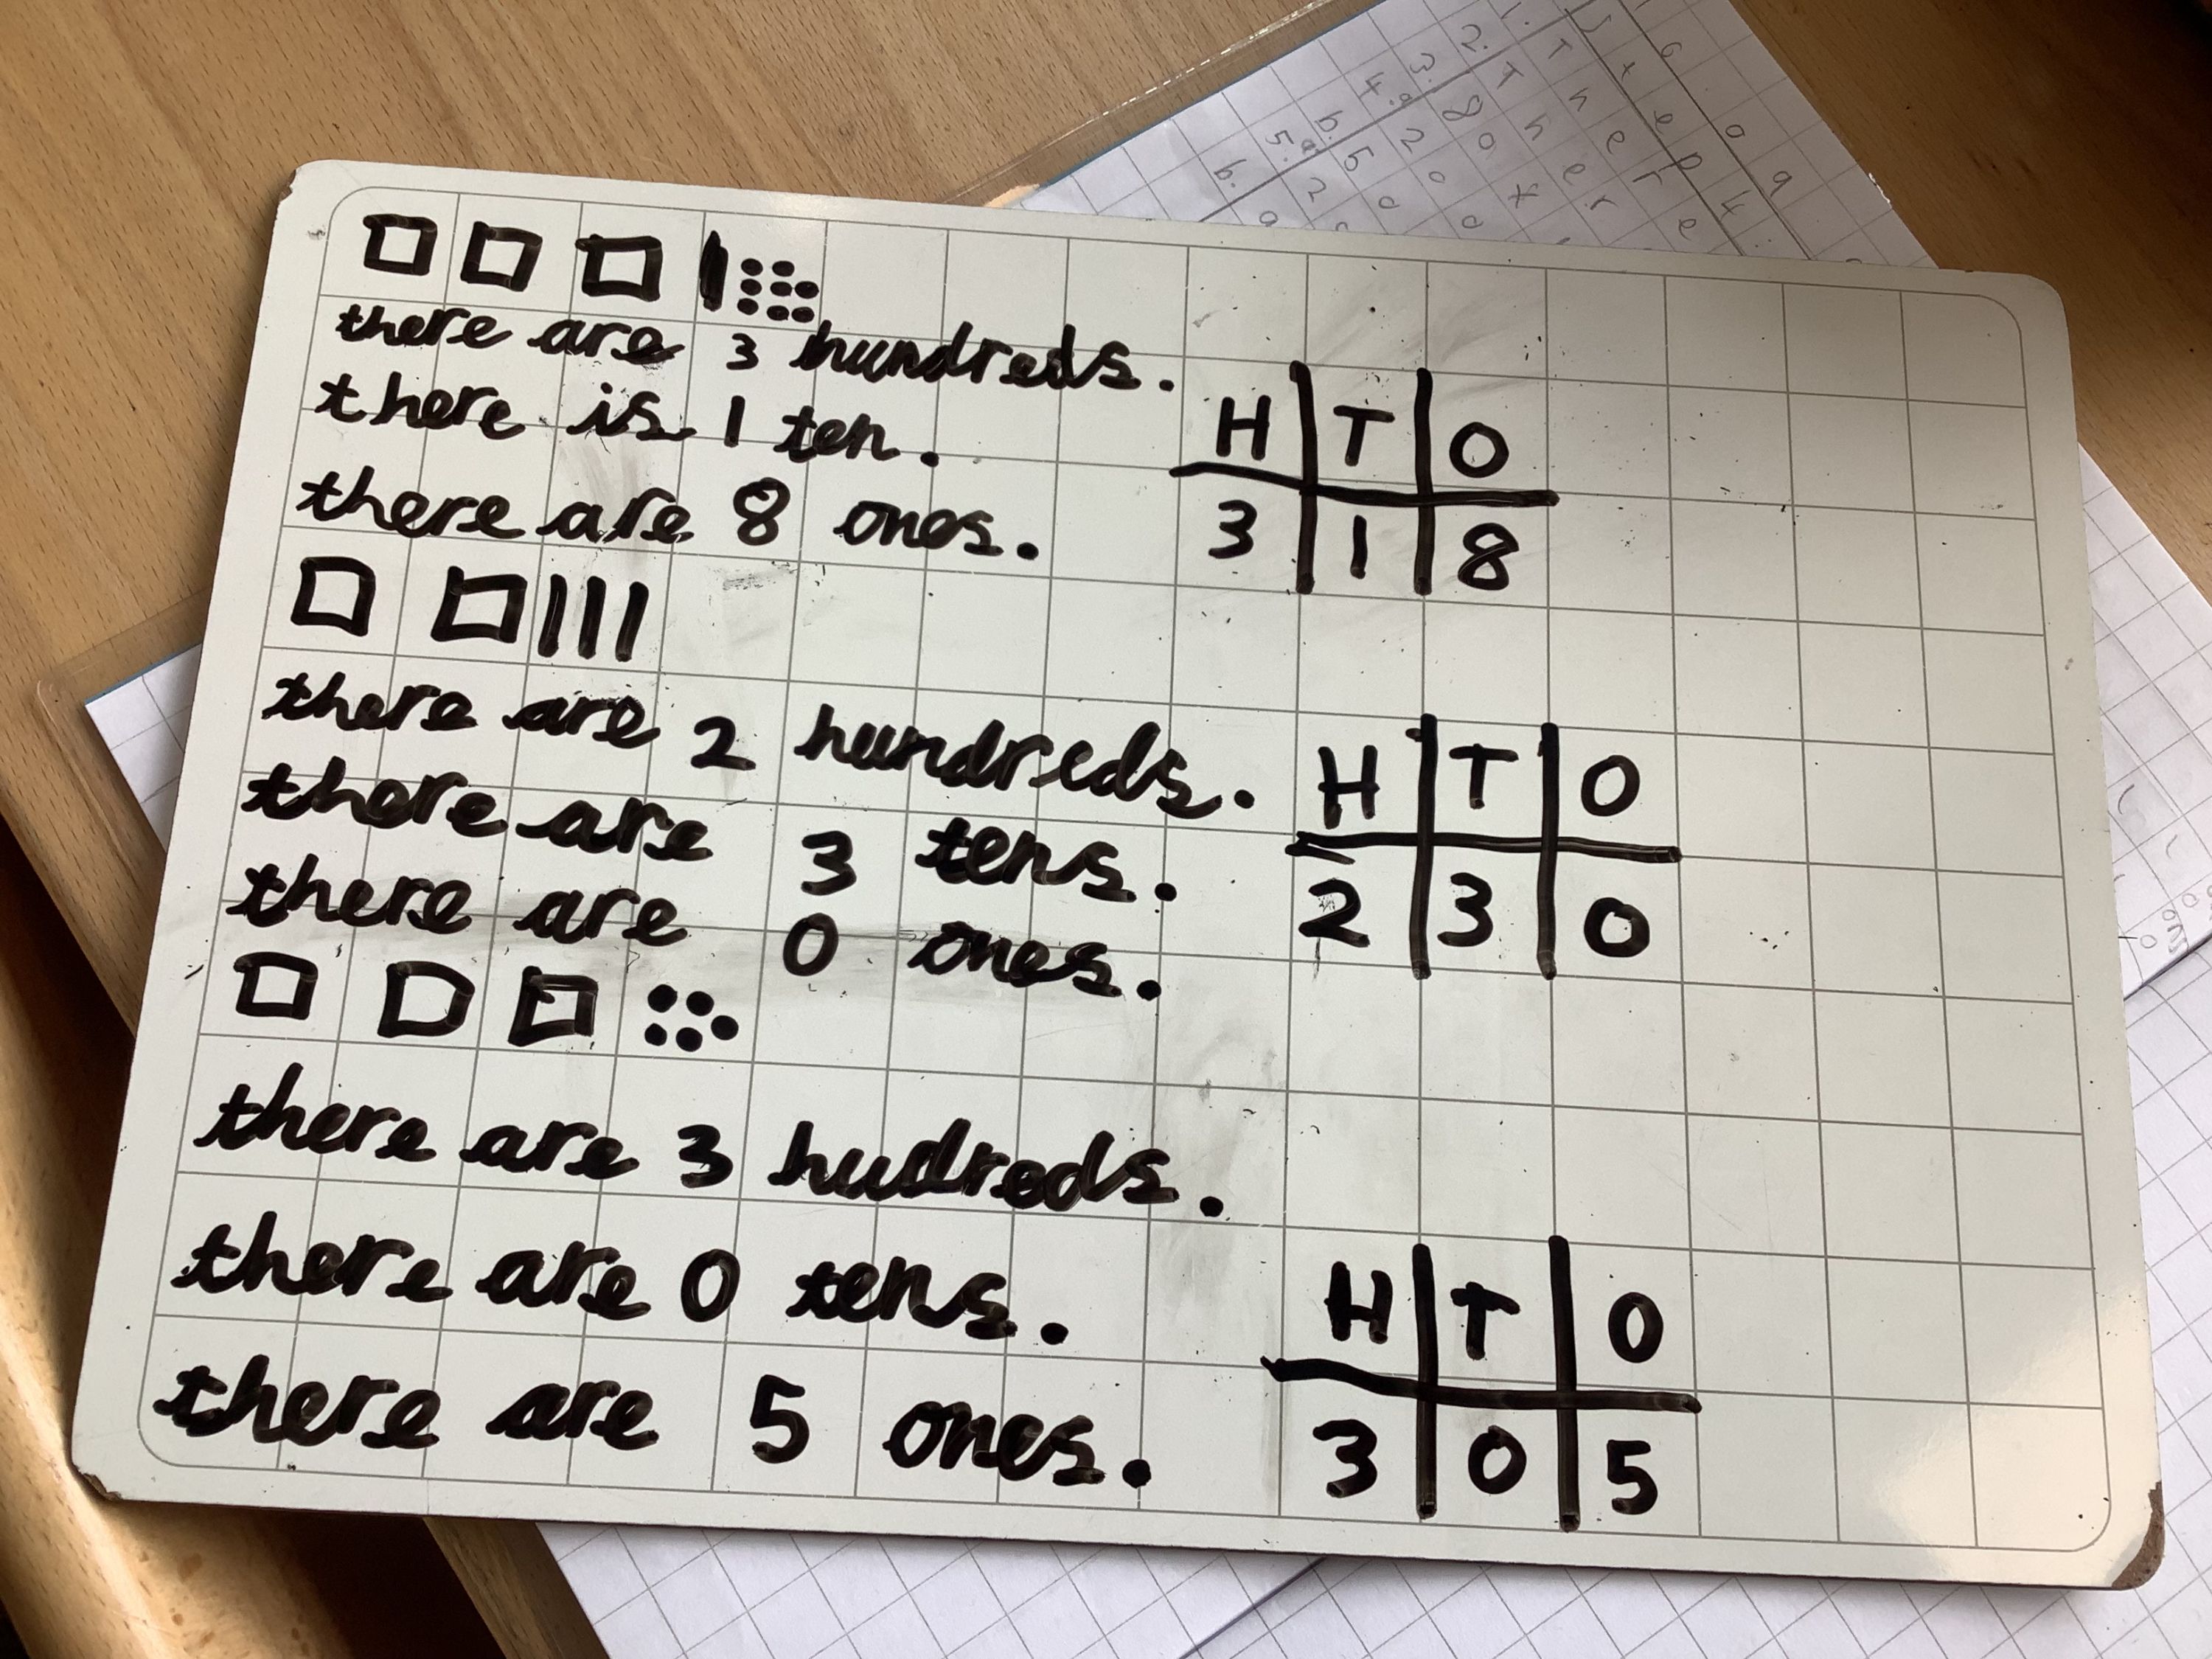 there are 3 hundreds.
there is 1 ten.
there are 8 ones.
H T O
3 1 8
there are 2 hundreds.
there are 3 tens.
there are 0 ones.
H T O
2 3 0
there are 3 hudreds.
there are 0 tens.
there are 5 ones.
H T O
3 0 5